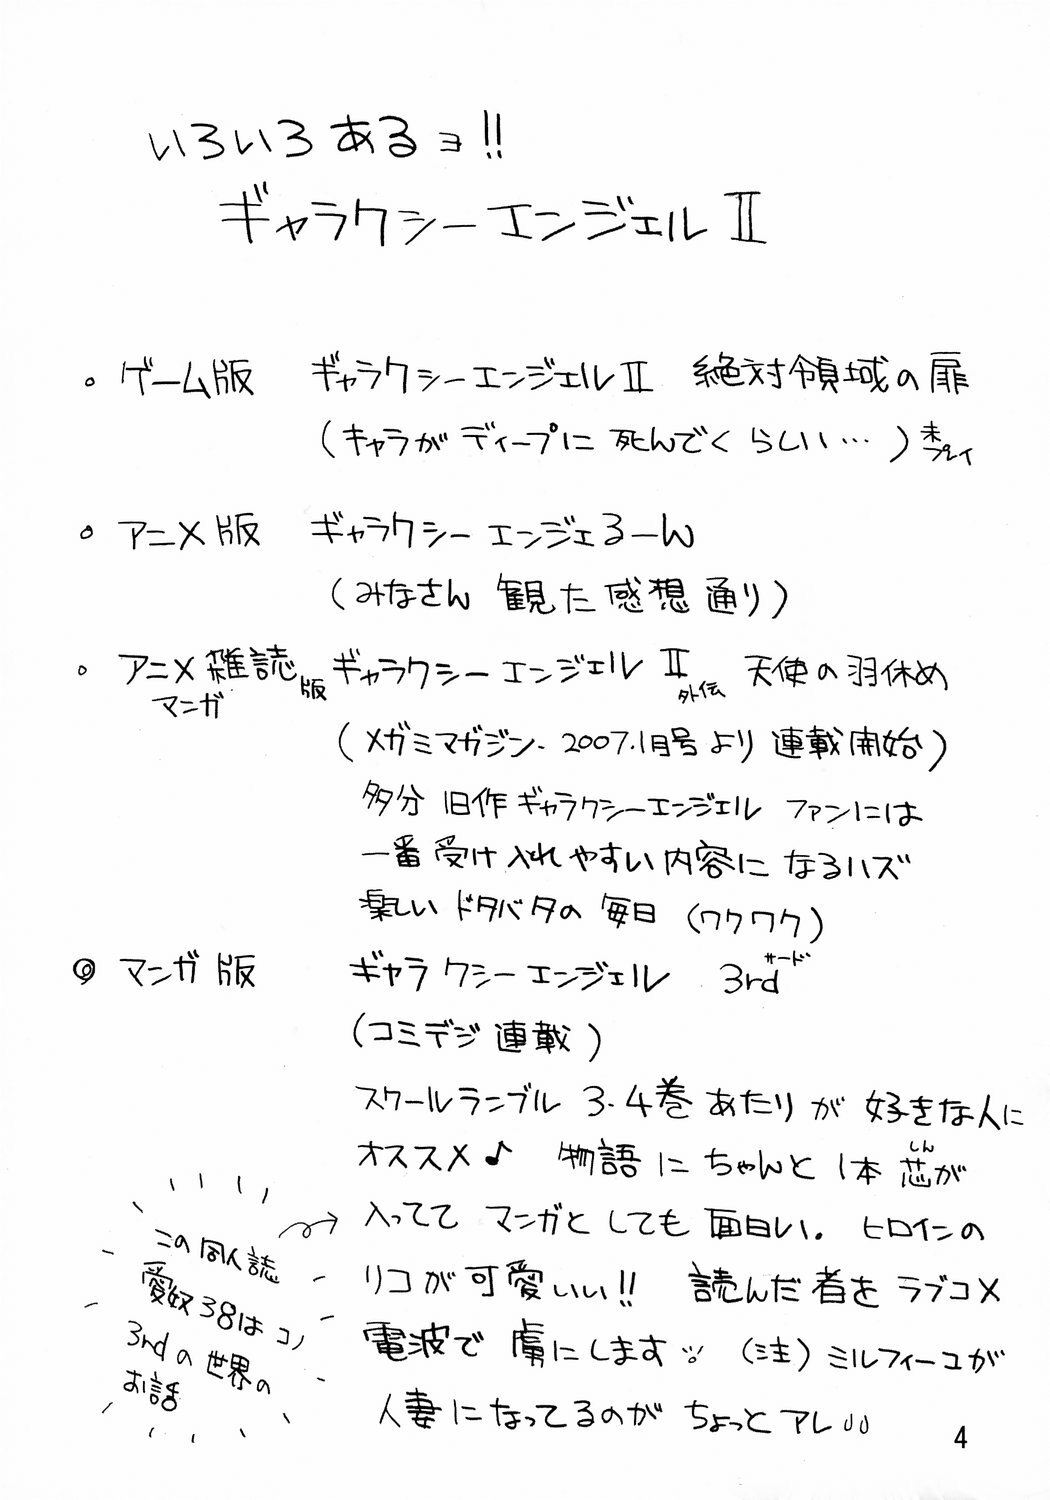 いろいろあるョ!!
ギャラクシーエンジェルⅡ
。ゲーム版 ギャラクシーエンジェルⅡ 絶対領域の扉
(キャラがディープに死んでくらしい…)未プレイ
。アニメ版 ギャラクシーエンジェるーん
(みなさん観た感想通り)
。アニメ雑誌マンガ版 ギャラクシーエンジェルⅡ外伝 天使の羽休め
(メガミマガジン. 2007.1月号より連載開始)
多分旧作ギャラクシーエンジェル ファンには
一番受け入れやすい内容になるハズ
楽しいドタバタの毎日(ワクワク)
◎マンガ版 ギャラクシーエンジェル 3rd サード
(コミデジ連載)
スクールランブル 3.4巻あたりが好きな人に
オススメ♪ 物語にちゃんと1本芯が しん
入ってて マンガとしても面白い. ヒロインの
リコが可愛いい!! 読んだ者をラブコメ
電波で虜にします (注)ミルフィーユが
人妻になってるのがちょっとアレ
この同人誌
愛奴38はコノ
3rdの世界の
お話
4